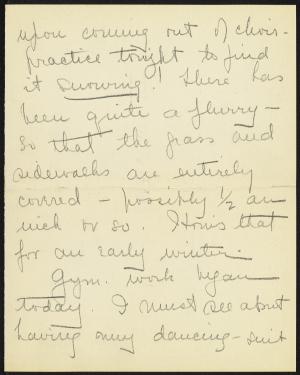 upon coming out of choir-
practice tonight to find
it snowing! There has
been quite a flurry -
so that the grass and
sidewalks are entirely
covered - possibly 1/2 an
inch or so. How's that
for an early winter.
Gym. work began
today. I must see about
having my dancing-suit